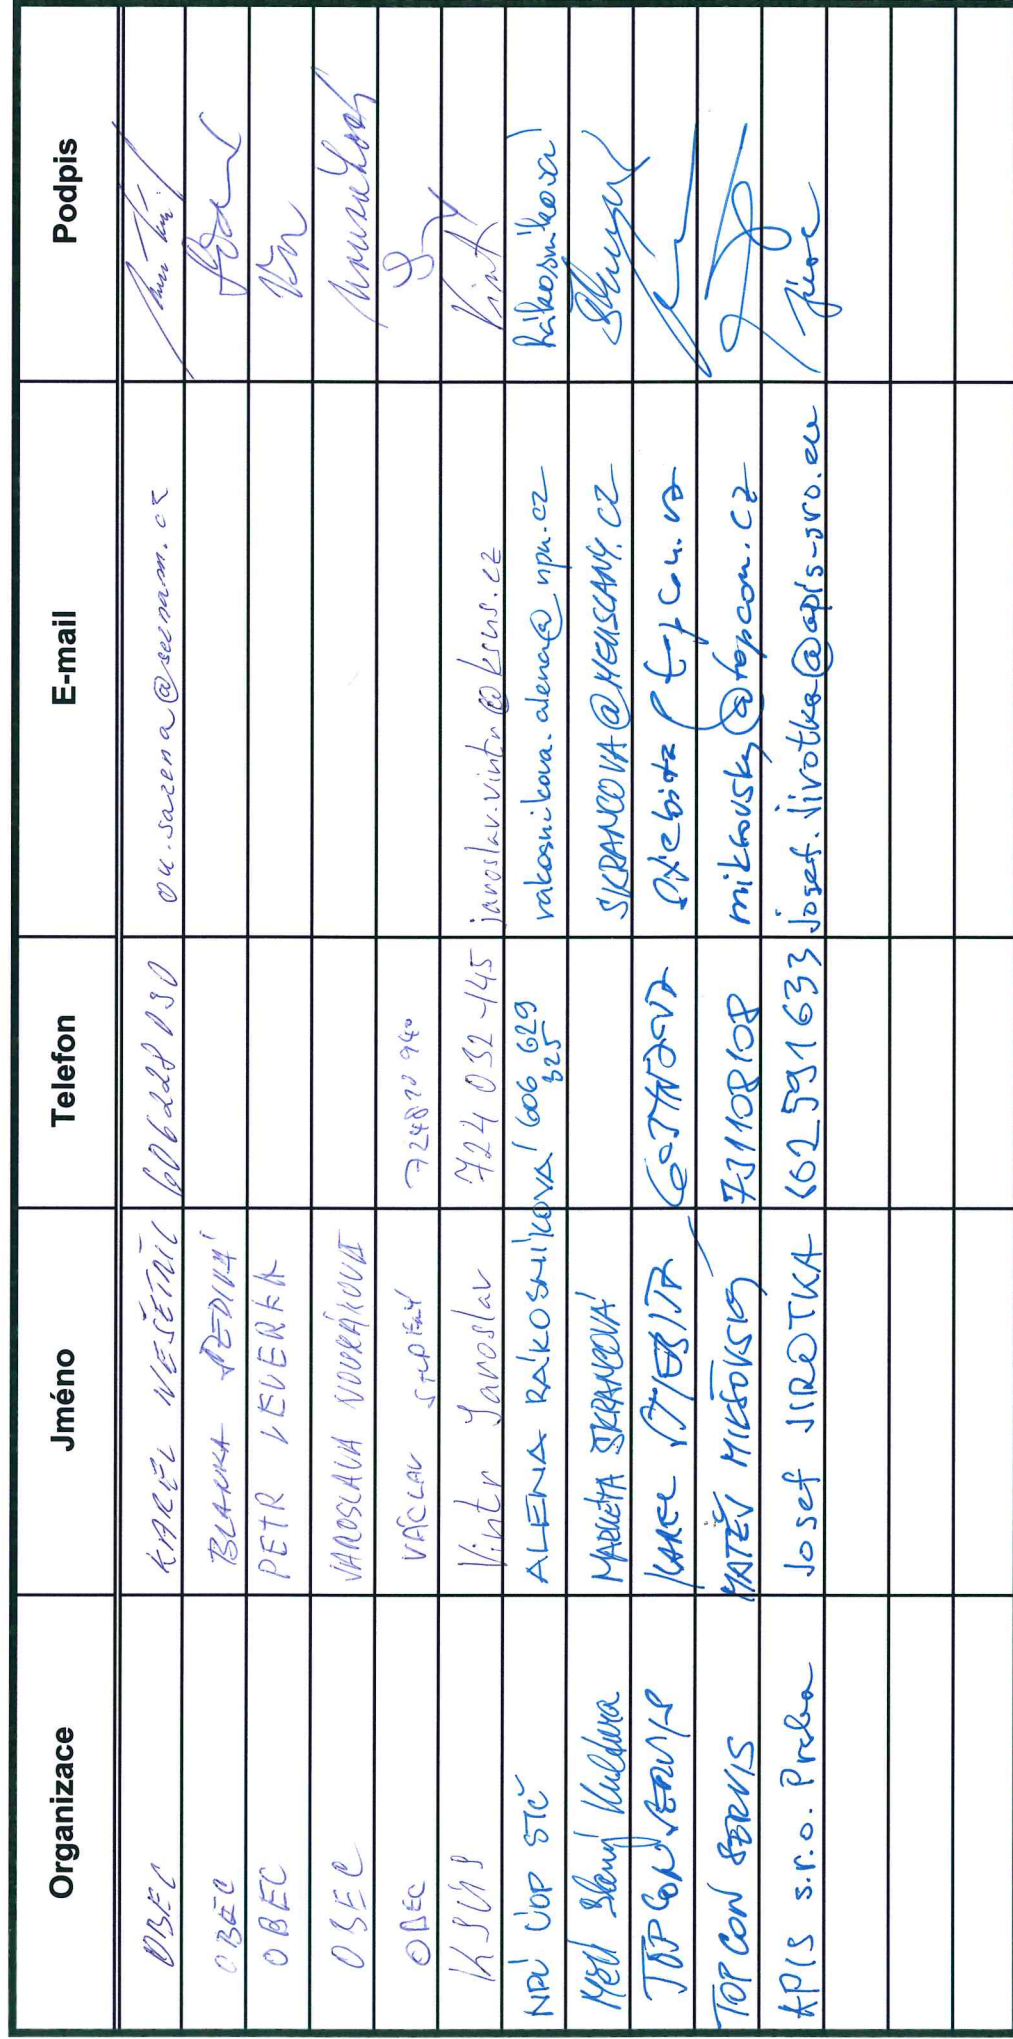 Organizace Jméno Telefon E-mail Podpis
OBEC KAREL NEŠETŘIL 606228030 ou.sazena@seznam.cz
OBEC BLANKA ŠEDIVÁ
OBEC PETR LEVERKA
OBEC JAROSLAVA NOVÁKOVÁ
OBEC VÁCLAV
KSÚS Vintr Jaroslav 724 032 145 jaroslav.vintr@ksus.cz Vintr
NPÚ ÚOP STČ ALENA RÁKOSNÍKOVÁ 606 629 325 rakosnikova.alena@npu.cz Rákosníková
MěÚ Slaný Kultura MARKÉTA ŠKRANCOVÁ SKRANCOVA@MEUSLANY.CZ
TOPCON SERVIS KAREL
TOPCON SERVIS MATĚJ MIKŠOVSKÝ 731108108 miksovsky@topcon.cz
APIS s.r.o. Praha Josef JIROTKA 602591633 josef.jirotka@apis-sro.eu